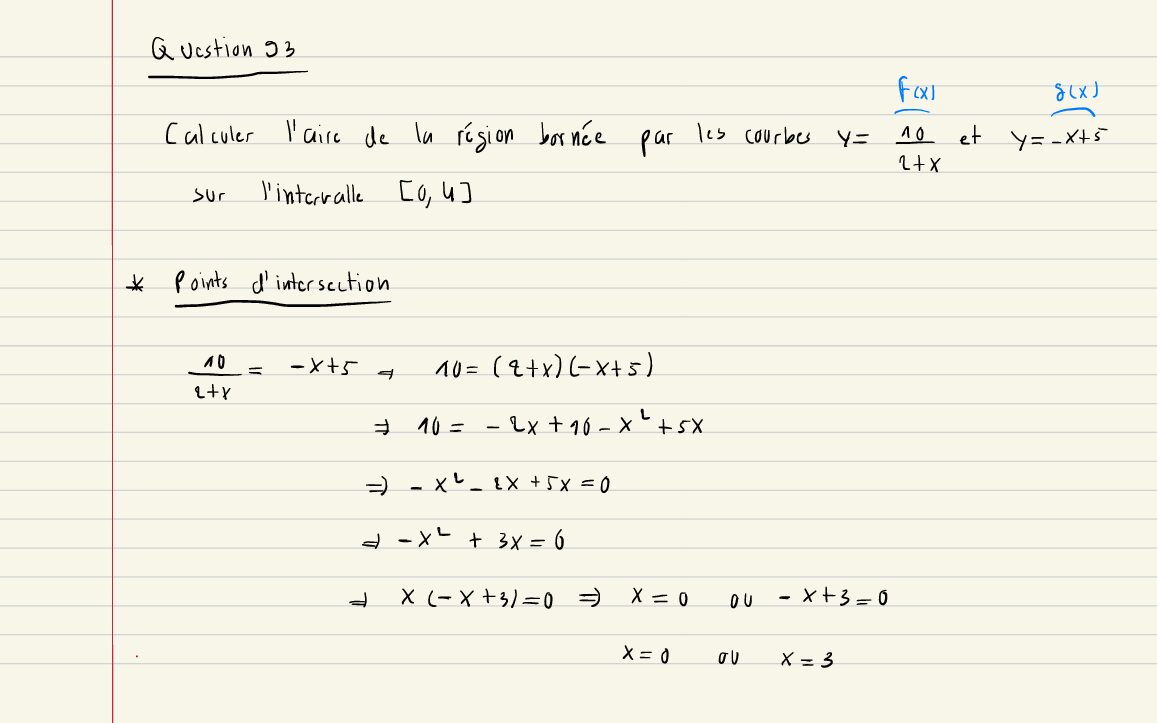 Question 93
f(x) g(x)
Calculer l'aire de la région bornée par les courbes y = 10/(2+x) et y = -x+5
sur l'intervalle [0, 4]
* Points d'intersection
10/(2+x) = -x+5 → 10 = (2+x)(-x+5)
⇒ 10 = -2x + 10 - x² + 5x
⇒ -x² - 2x + 5x = 0
⇒ -x² + 3x = 0
⇒ x(-x+3) = 0 ⇒ x = 0 ou -x+3 = 0
x = 0 ou x = 3